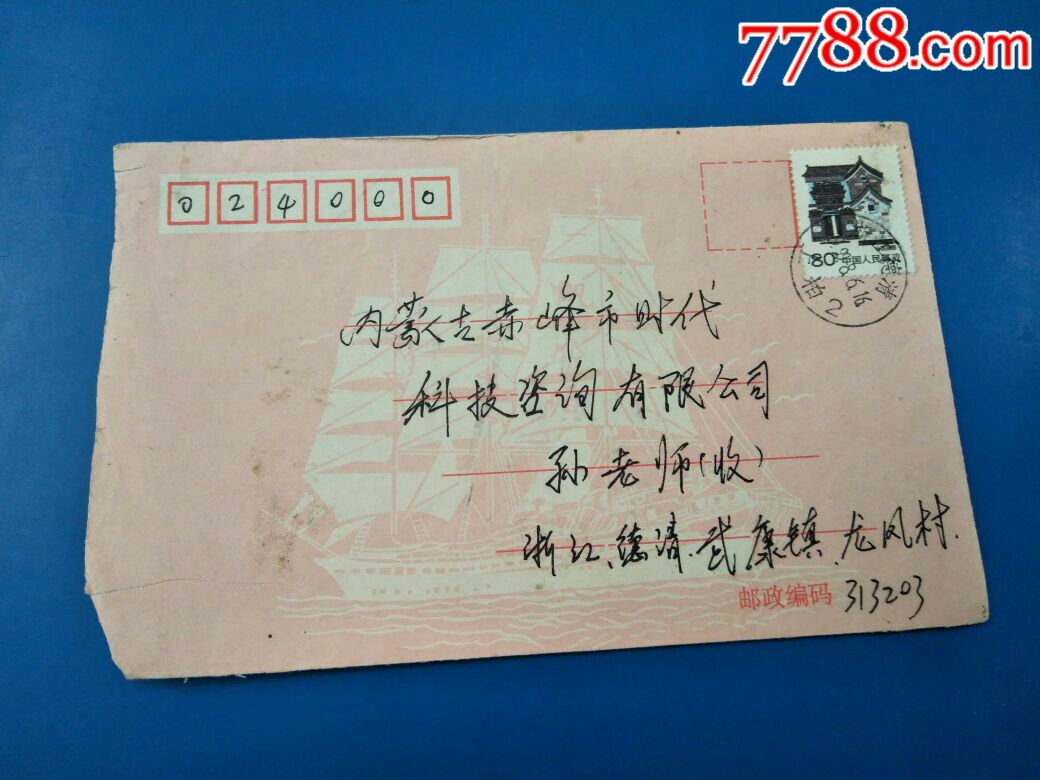 7788.com
024000
80分 中国人民邮政
内蒙古赤峰市时代
科技咨询有限公司
孙老师(收)
浙江.德清.武康镇.龙凤村.
邮政编码 313203